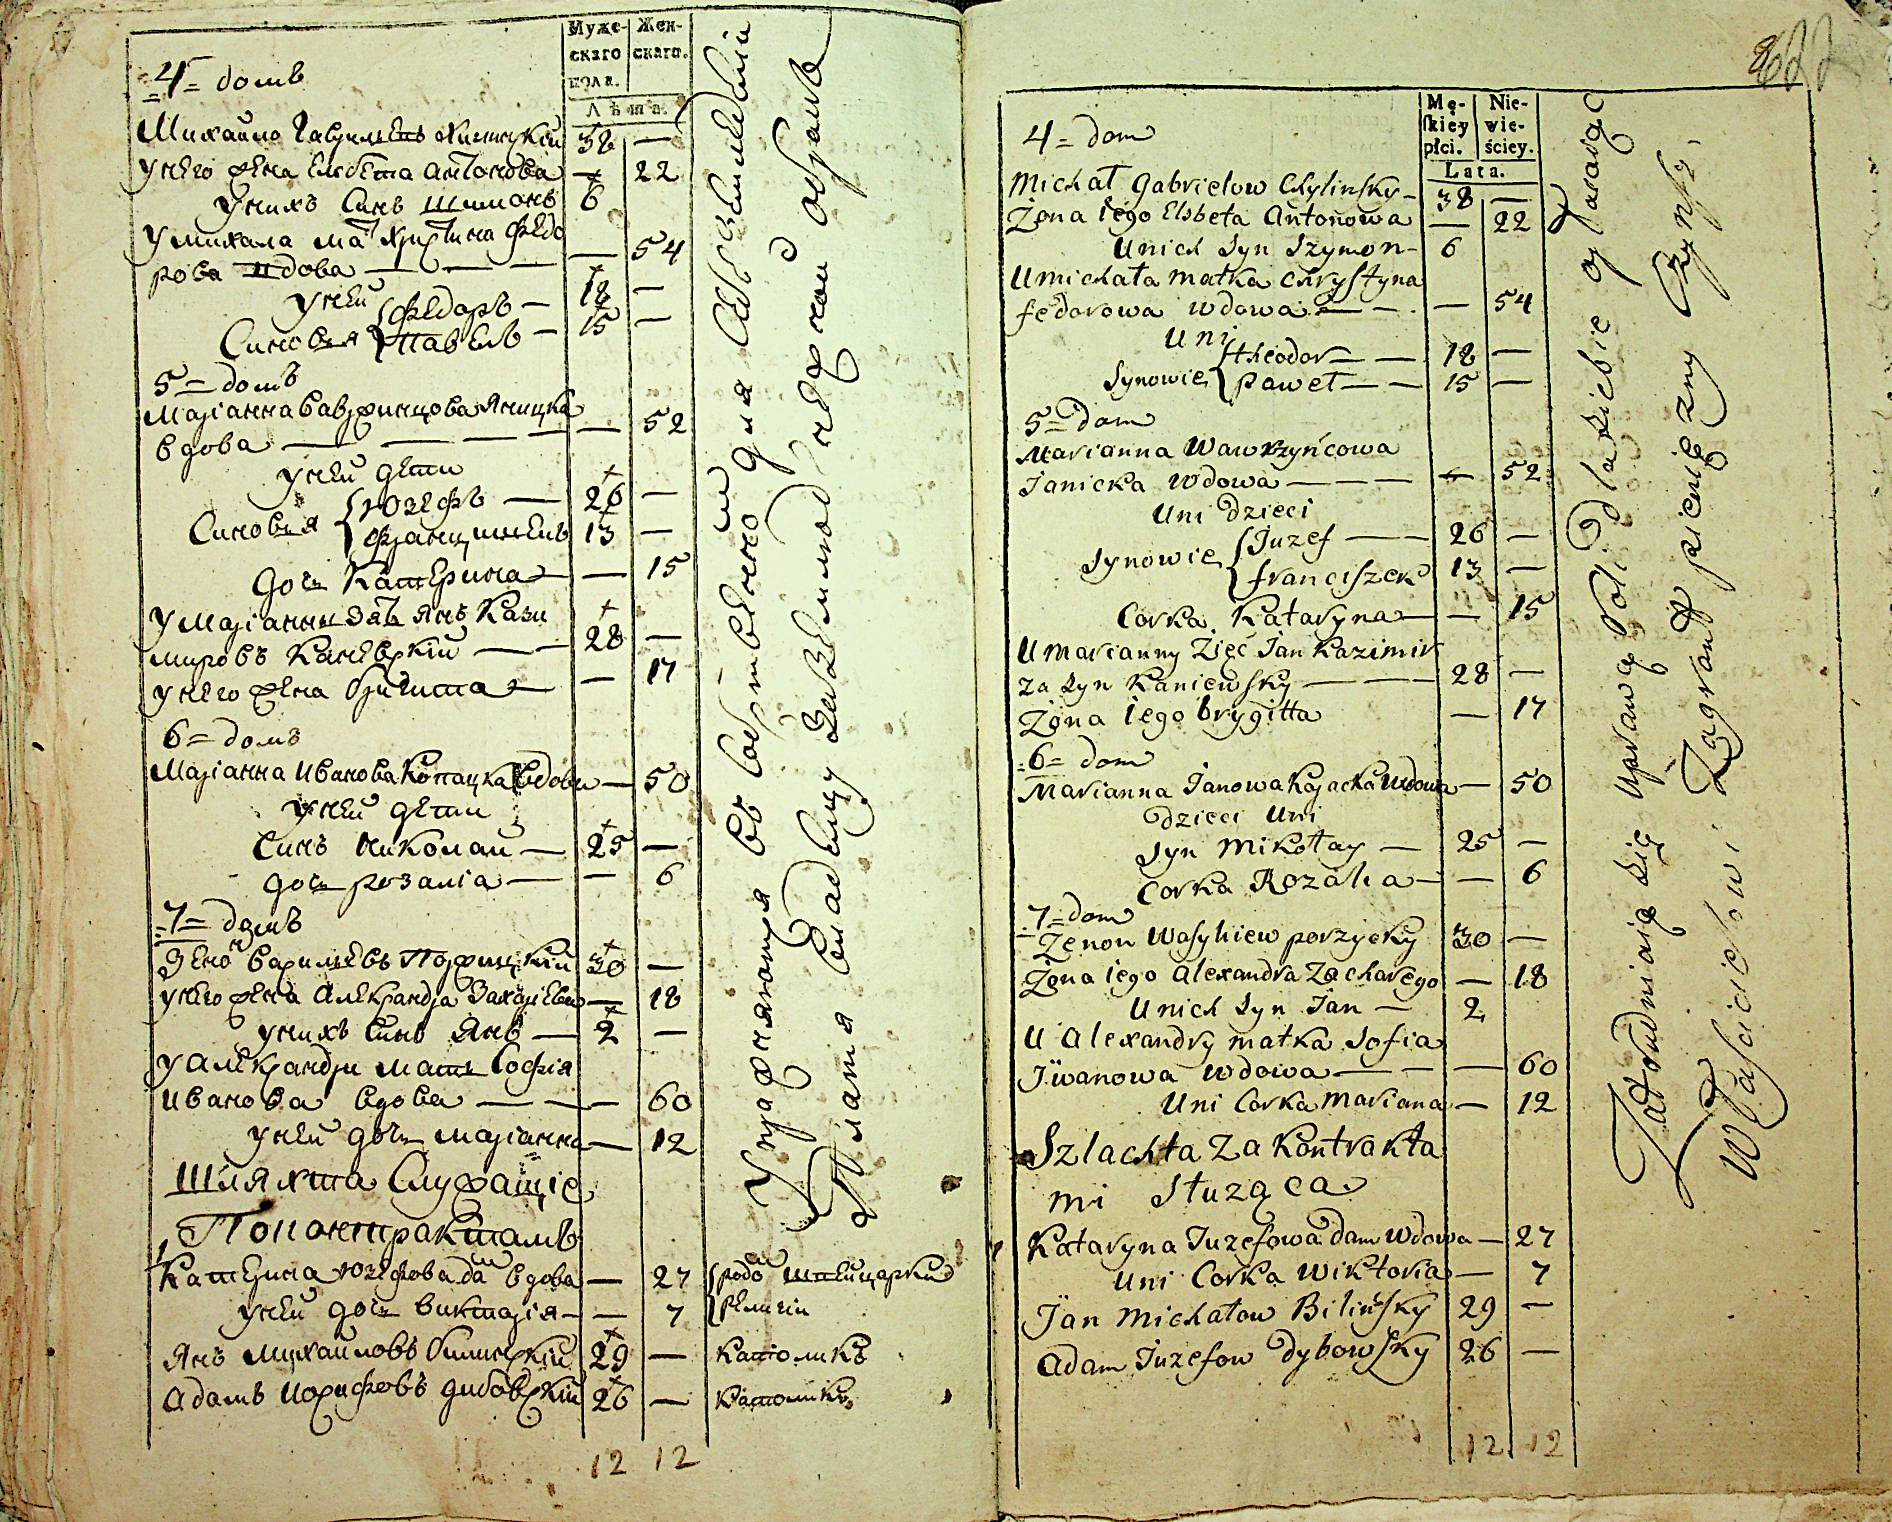 Муже-
скаго
пола.
Жен-
скаго.
Лѣта.
=4= домъ
Михайло Гаврилевъ Хилинскій 38 —
У него жена Елсбета Антонова — 22
У нихъ синъ Шимонъ 6
У михала мать Христина Федо
рова вдова — — — — 54
У ней
Синовья { Федоръ — 18 —
Павелъ — 15 —
5= домъ
Маріанна Вавржинцова Яницка
вдова — — — — — 52
У ней дети
Синовья { Юзефъ — 26 —
Францишекъ 13 —
Дочь Катержина — — 15
У Маріанны зять Янъ Кази
мировъ Каневскій — — 28 —
У него жена Бригитта — — 17
6= домъ
Маріанна Иванова Копацка вдова — 50
У ней дети
Синъ Николай — 25 —
Дочь Розалія — — 6
=7= домъ
Зенон Василевъ Поржицкій 30 —
У него жена Александра Захаріева — 18
У нихъ Синъ Янъ — 2 —
У Александри мать Софія
Иванова вдова — — — 60
У ней дочь маріанна — 12
Шляхта Служащіе
По контрактамъ
Катерина Юзефова дам вдова — 27
У ней дочь Викторія — — 7
Янъ Михайловъ Билинскій 29 —
Адамъ Иосифовъ Дибовскій 26 —
12 12
Упражняются въ собственной для себя
Платя владелцу земли
католикъ
католикъ
622
Mę-
skiey
płci.
Nie-
wie-
ściey.
Lata.
4= dom
Michał Gabrielow Chylinsky — 38 —
Żona iego Elsbeta Antonowa — 22
Unich Syn Szymon — 6
U michała matka Chrystyna
fedorowa wdowa — — . — 54
Uni
Synowie { theodor — — 18 —
Paweł — — 15 —
5= dom
Marianna Wawrzyńcowa
Janicka Wdowa — — — — 52
Uni dzieci
Synowie { Juzef — — 26 —
franciszek 13 —
Corka Kataryna — — 15
U marianny Zięć Jan Kazimir
za Syn Kaniewsky — — — 28 —
Żona iego brygitta — 17
=6= dom
Marianna Janowa Kopacka Wdowa — 50
dzieci Uni
Syn Mikołay — 25 —
Corka Rozalia — — 6
=7= dom
Zenon Wasyliew porzycky 30 —
Żona iego Alexandra Zacharego — 18
Unich Syn Jan — 2
U Alexandry matka Sofia
Jwanowa wdowa — — — 60
Uni Corka Mariana — 12
Szlachta Za Kontrakta
mi Służąca
Kataryna Juzefowa dam wdowa — 27
Uni Corka Wiktoria — 7
Jan Michałow Bilińsky 29 —
Adam Juzefow dybowsky 26 —
12 12
Zatrudniaią się uprawą Roli dla siebie
Właścicielowi Zagrunt pieniężny Czynsz.